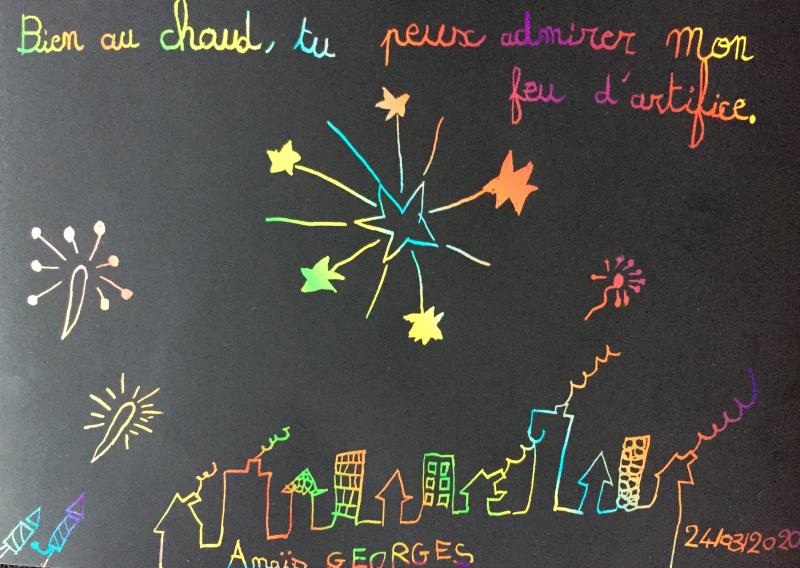 Bien au chaud, tu peux admirer mon
feu d'artifice.
24/03/2020
Anaïs GEORGES